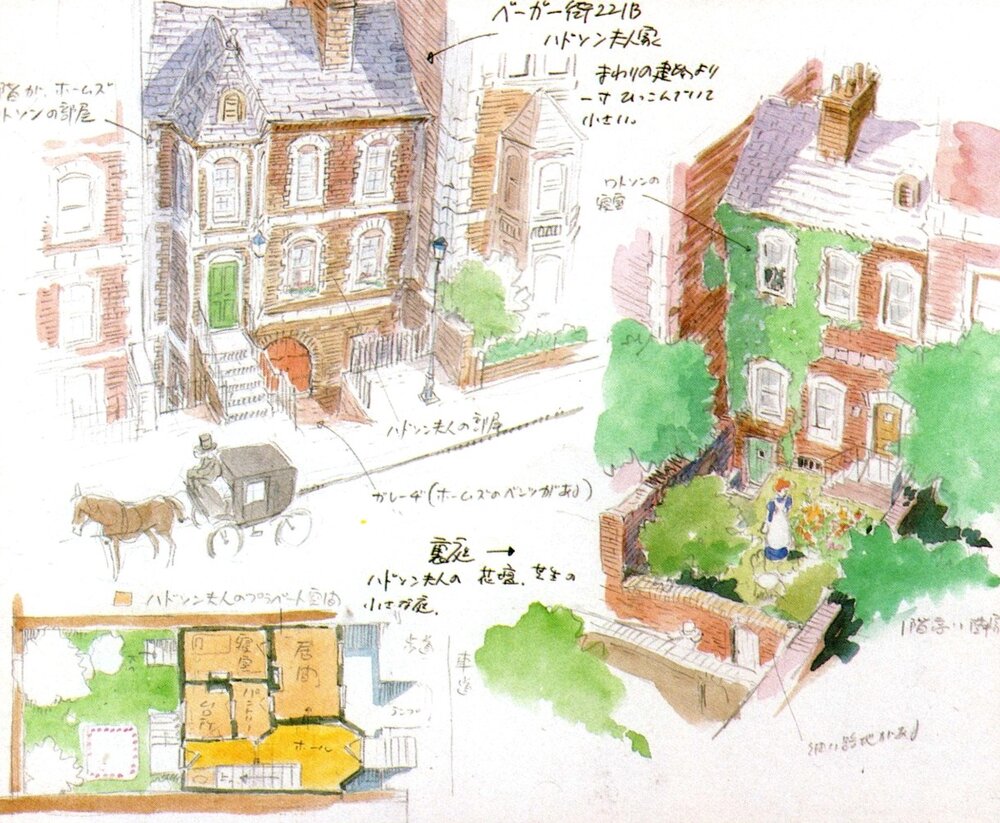 ベーカー街221B
ハドソン夫人家
まわりの建物より
一寸ひっこんでいて
小さい。
階が、ホームズ
トソンの部屋
ワトソンの
寝室
ハドソン夫人の部屋
ガレージ(ホームズのベンツがある)
裏庭 →
ハドソン夫人の 花壇、芝生の
小さな庭。
ハドソン夫人のプライベート空間
寝室
居間
台所
パントリー
ホール
歩道
車道
細い路地がある